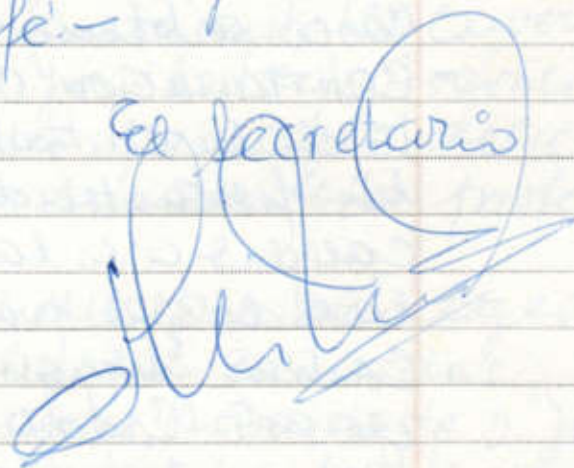 fé.-
El Secretario